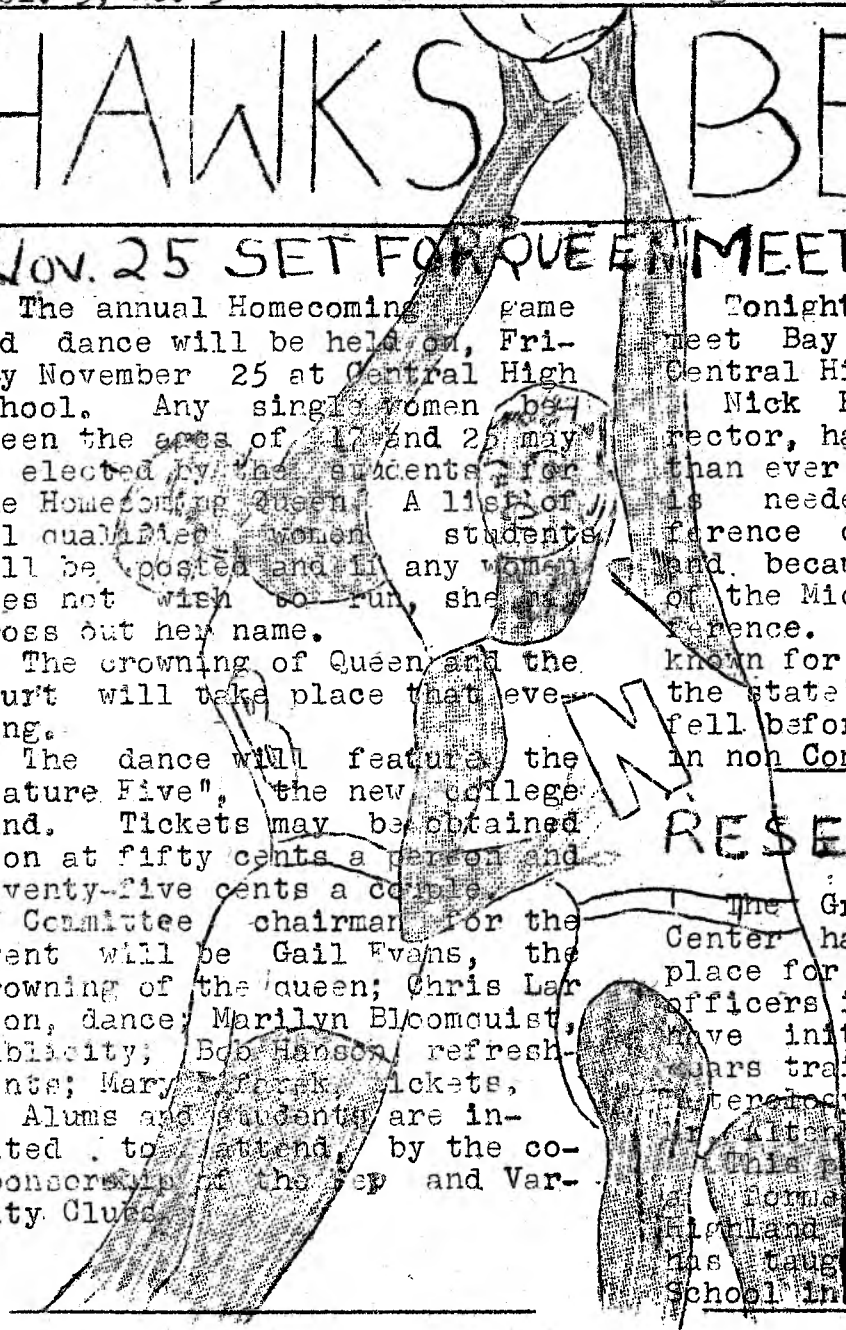 HAWKS BE
Nov. 25 SET FOR QUEEN
The annual Homecoming game
d dance will be held on, Fri-
y November 25 at Central High
hool. Any single women be-
een the ages of 17 and 25 may
elected by the students for
e Homecoming Queen. A list of
l qualified women students
ll be posted and if any women
es not wish to run, she may
oss out her name.
The crowning of Queen and the
urt will take place that eve-
ng.
The dance will feature the
ature Five", the new college
nd. Tickets may be obtained
on at fifty cents a person and
venty-five cents a couple.
Committee chairman for the
ent will be Gail Evans, the
owning of the queen; Chris Lar
on, dance; Marilyn Bloomquist,
blicity; Bob Hanson, refresh-
nts; Mary tickets,
Alums and students are in-
ted to attend, by the co-
onsorship of the Pep and Var-
ity Clubs
MEET
Tonight
meet Bay
Central Hi
Nick
rector, ha
than ever
is neede
ference
and. becau
of the Mic
ference.
known for
the state
fell befor
in non Con
N
RESE
The Gr
Center ha
place for
officers i
have init
years trai
This p
a forme
Highland
has taug
School in